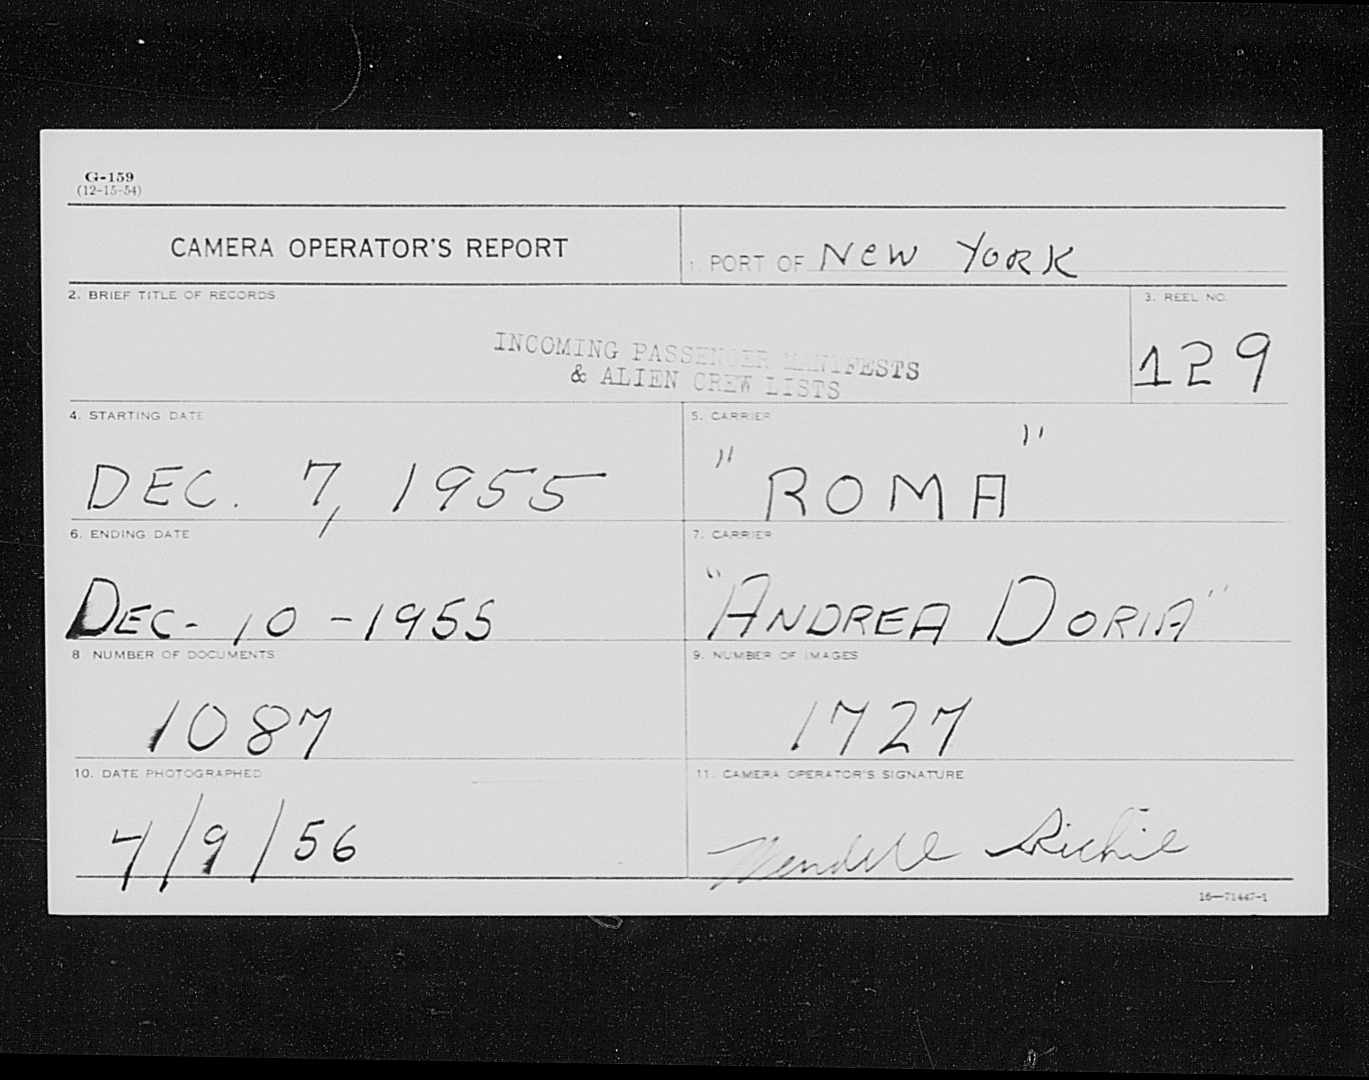 G-159
(12-15-54)
CAMERA OPERATOR'S REPORT
1. PORT OF New York
2. BRIEF TITLE OF RECORDS
INCOMING PASSENGER MANIFESTS
& ALIEN CREW LISTS
3. REEL NO.
129
4. STARTING DATE
DEC. 7, 1955
5. CARRIER
"ROMA"
6. ENDING DATE
DEC- 10 - 1955
7. CARRIER
"ANDREA DORIA"
8. NUMBER OF DOCUMENTS
1087
9. NUMBER OF IMAGES
1727
10. DATE PHOTOGRAPHED
7/9/56
11. CAMERA OPERATOR'S SIGNATURE
Wendell Richie
16—71447-1